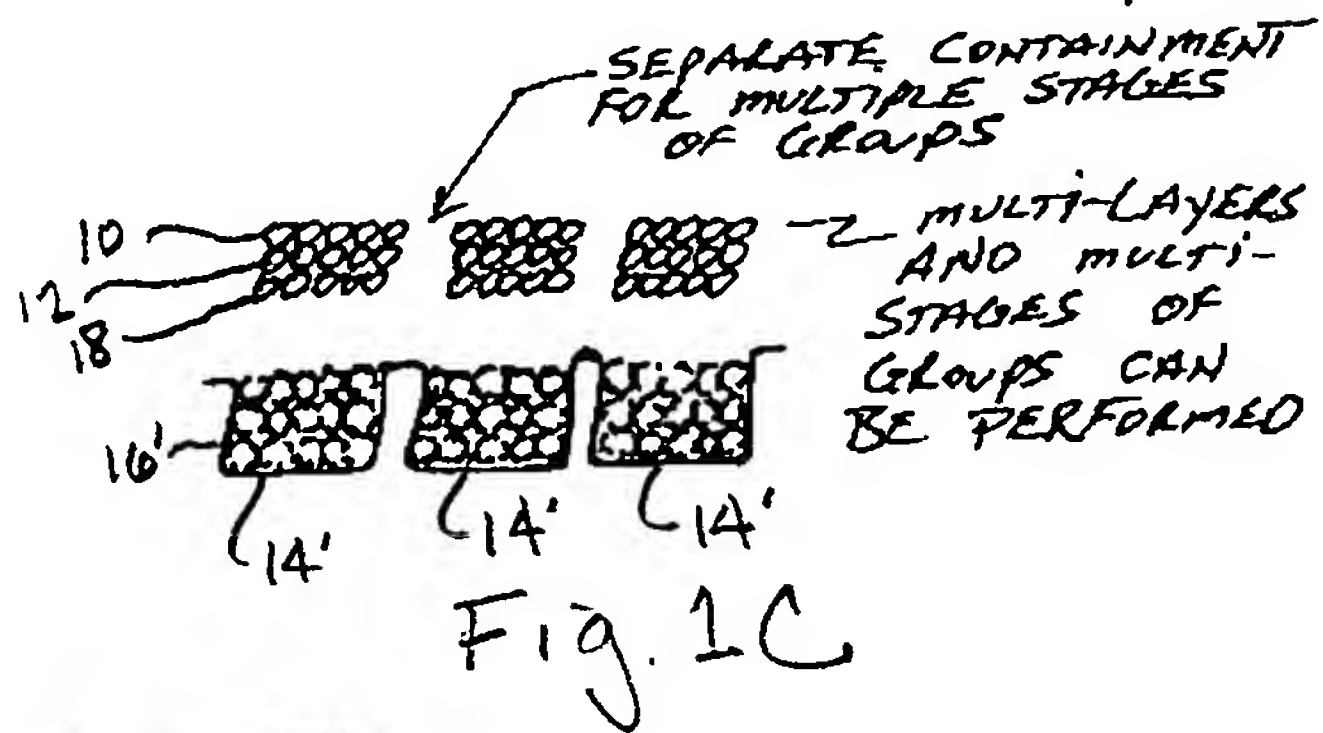 SEPARATE CONTAINMENT
FOR MULTIPLE STAGES
OF GROUPS
MULTI-LAYERS
AND MULTI-
STAGES OF
GROUPS CAN
BE PERFORMED
10
12
18
16'
14'
14'
14'
Fig. 1C